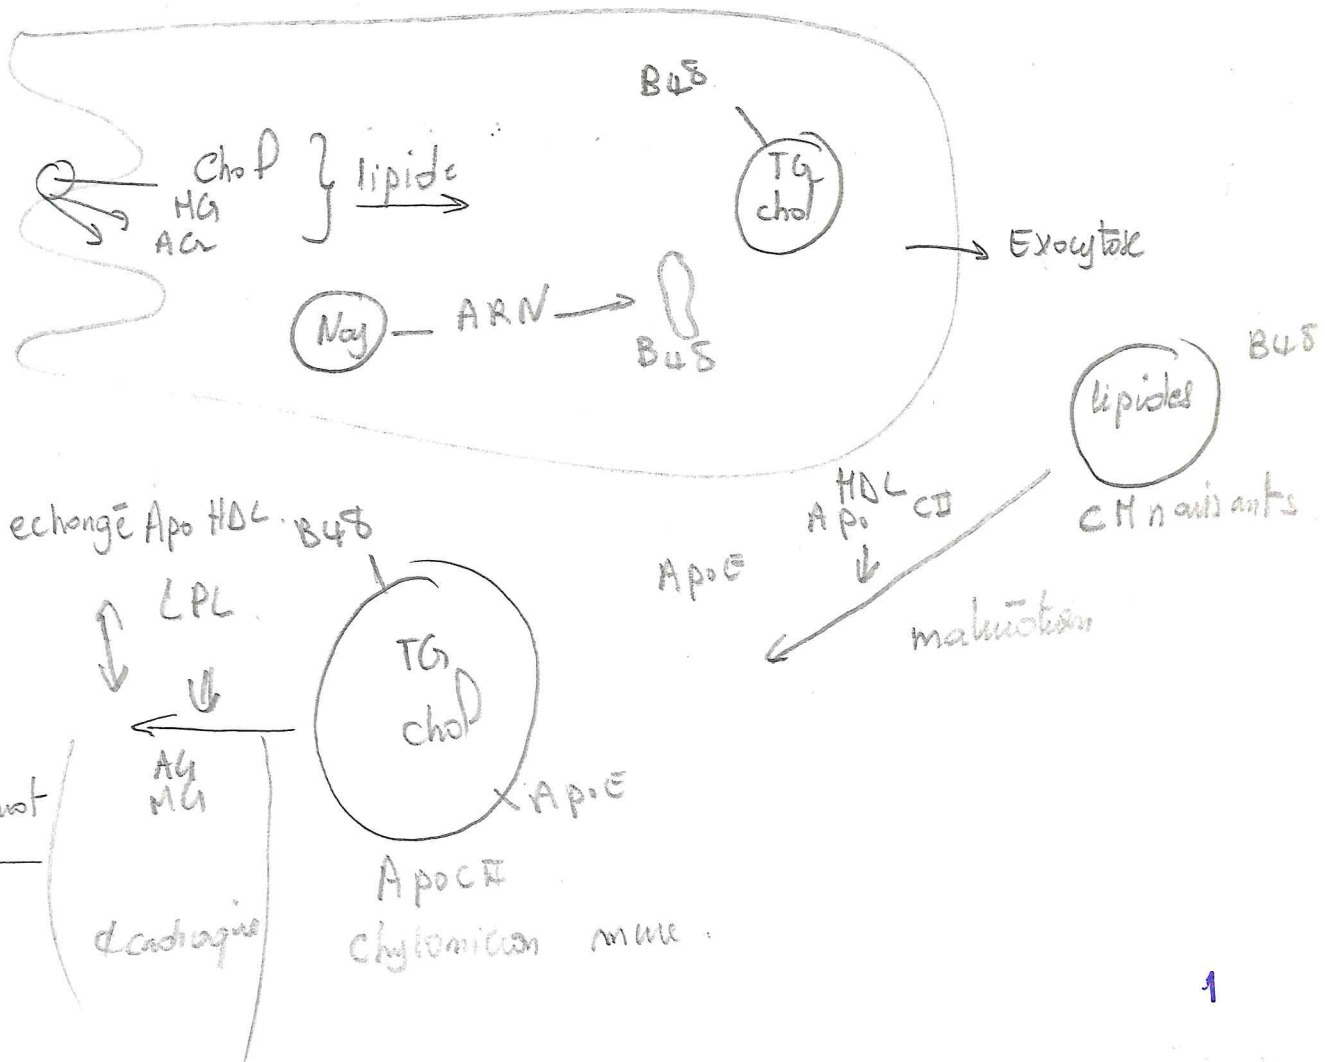 B48
Chol
MG
AG
lipide
TG
chol
Exocytose
Noy
ARN
B48
B48
lipides
CM naissants
HDL
Apo CII
ApoE
maturation
echange Apo HDL
B48
LPL
TG
chol
AG
MG
ApoE
ApoCII
chylomicron mure
1